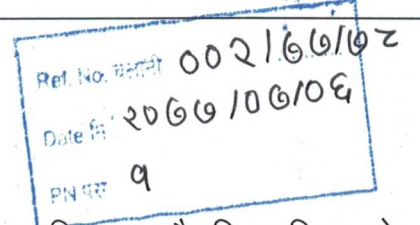 Ref. No. चलानी ००२/७७/७८
Date मि २०७७/०७/०६
PN पत्र १